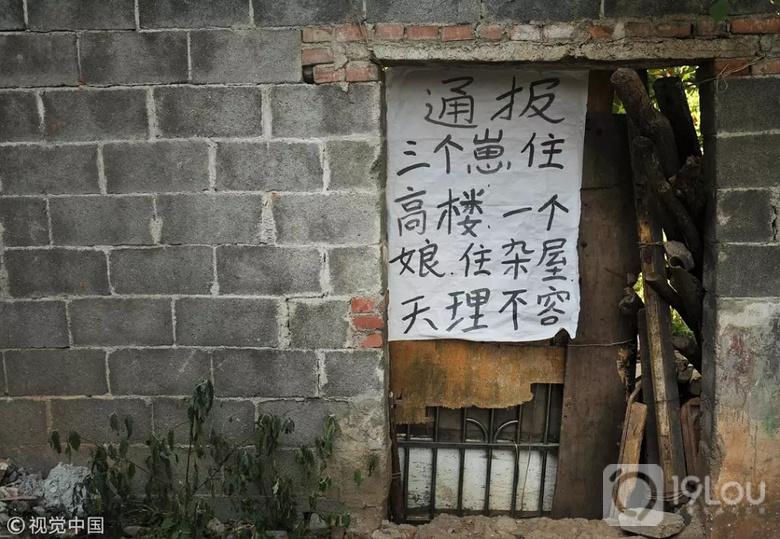 通报
三个崽住
高楼.一个
娘.住杂屋
天理不容
19Lou
©视觉中国